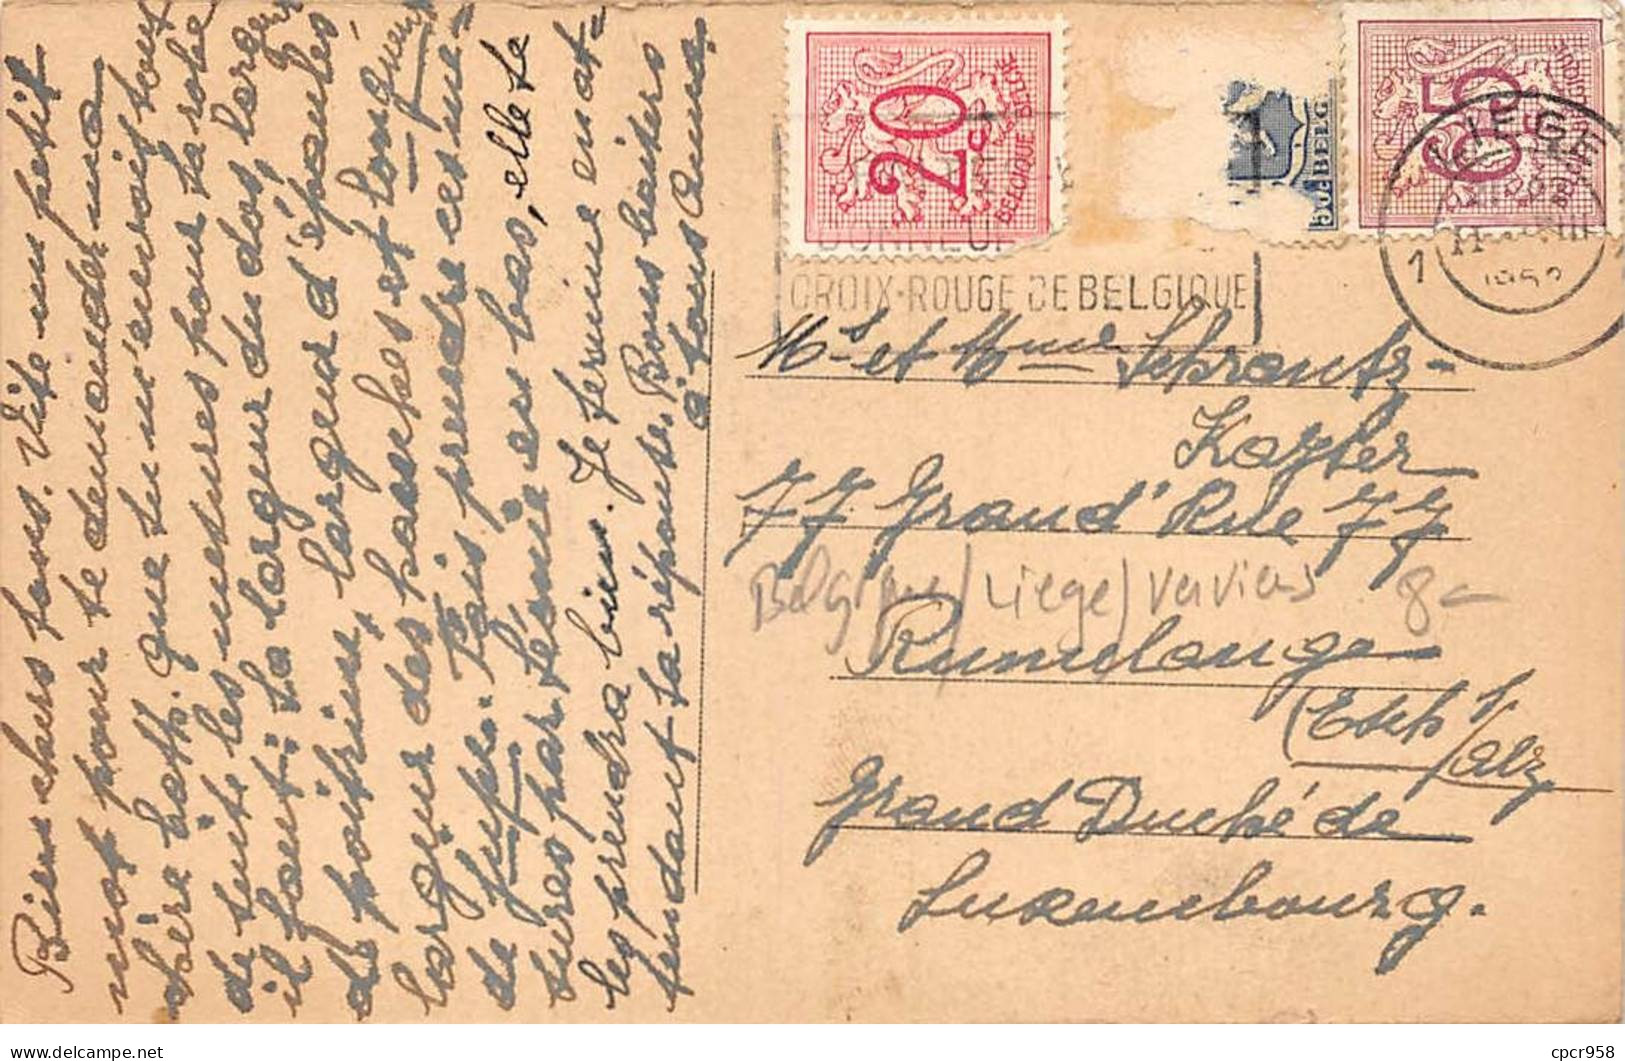 Bien chers tous. Vite un petit
mot pour te demander ma
chère Cath. que tu m'envois tout
de suite les mesures pour ta robe
il faut: la largeur du dos, largeur
de poitrine, largeur d'épaules
largeur des hanches et longueur
de jupe. Vas prendre ces me-
sures par Léonie en bas, elle te
les prendra bien. Je termine en at-
tendant ta réponse. Bons baisers
à tous Anna
20c
BELGIQUE BELGIE
50c BELG
50
BELGIQUE
LIEGE
1
1952
DONNEUR
CROIX-ROUGE DE BELGIQUE
Mr et Mme Schrantz-
Kayser
77 Grand'Rue 77
Belgique/Liege/Verviers 8-
Rumelange
(Esch s/Alz
Grand Duché de
Luxembourg.
cpcr958